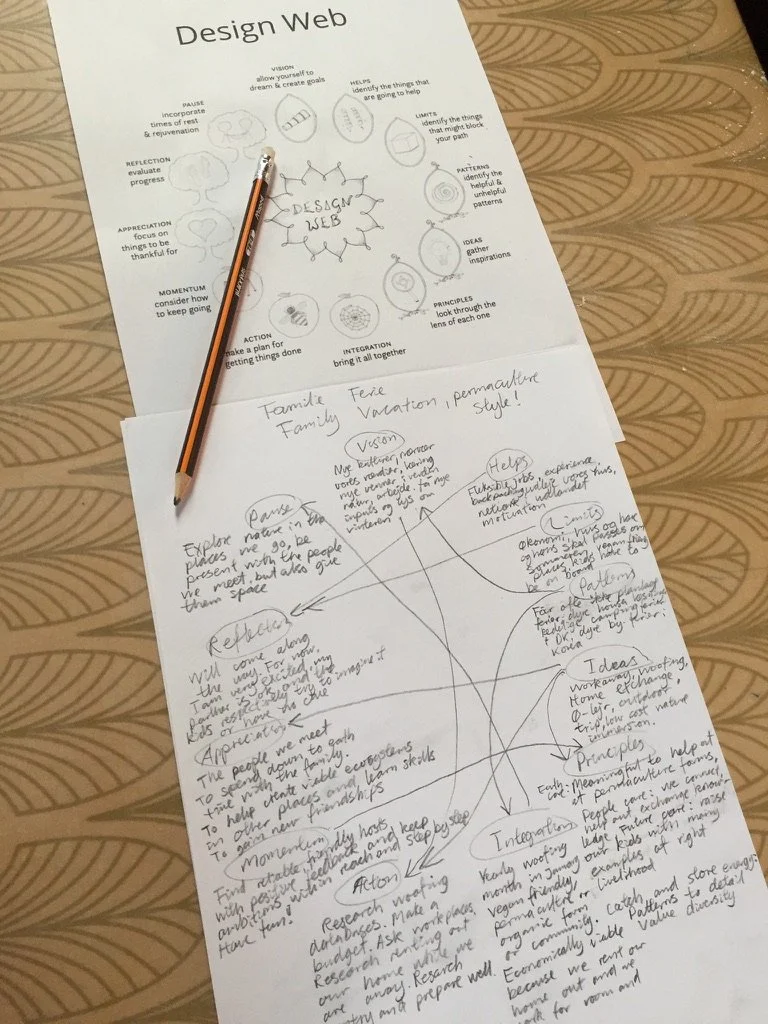 Design Web
VISION
allow yourself to
dream & create goals
HELPS
identify the things that
are going to help
LIMITS
identify the things
that might block
your path
PATTERNS
identify the
helpful &
unhelpful
patterns
IDEAS
gather
inspirations
PRINCIPLES
look through the
lens of each one
INTEGRATION
bring it all together
ACTION
make a plan for
getting things done
MOMENTUM
consider how
to keep going
APPRECIATION
focus on
things to be
thankful for
REFLECTION
evaluate
progress
PAUSE
incorporate
times of rest
& rejuvenation
DESIGN
WEB
Familie Ferie
Family Vacation, permaculture
style!
Vision
Nye kulturer,
vores
nye venner i verden
natur, arbejde. få nye
inputs og lys om
vinteren
Helps
Fleksible jobs, experience
backpacking, udleje vores hus,
netværk i udlandet
motivation
Limits
Økonomi, hus og have
og høns skal passes om
sommeren,
places, kids have to
be on board
Patterns
Får ofte ikke planlagt
ferier, dyre
camping ferier
i DK, dyre by ferier,
Korea
Ideas
Workaway, woofing,
Home exchange,
Ø-lejr, outdoor
trip, low cost nature
immersion.
Principles
Earth
care: Meaningful to help out
at permaculture farms,
People care: we connect,
help out and exchange know-
ledge. Future care: raise
our kids with many
examples of right
livelihood
Catch and store energy:
Patterns to detail
Value diversity
Integration
Yearly woofing
month in January
vegan friendly,
permaculture or
organic farm
or community.
Economically viable
because we rent our
home out and we
work for room and
Action
Research woofing
databases. Make a
budget. Ask workplaces.
Research renting out
our home while we
are away. Research
country and prepare well.
Momentum
Find reliable, friendly hosts
with positive feedback and keep
ambitions within reach and step by step
Have fun!
Appreciation
The people we meet
To spend down to earth
time with the family.
To help create viable ecosystems
in other places and learn skills
To gain new friendships
Reflection
Will come along
the way. For now,
I am very excited, my
partner is ok and the
kids respectively try to imagine it
or have no clue
Pause
Explore nature in the
places we go, be
present with the people
we meet, but also give
them space